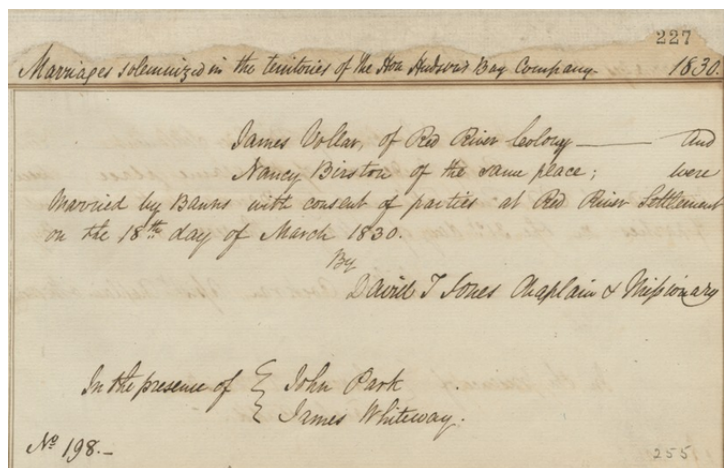 227
Marriages solemnized in the territories of the Hon Hudson's Bay Company- 1830.
James Vollar, of Red River Colony — and
Nancy Birston of the same place; were
Married by Banns with consent of parties at Red River Settlement
on the 18th day of March 1830.
By
David T Jones Chaplain & Missionary
In the presence of { John Park
{ James Whiteway.
No 198.-
255